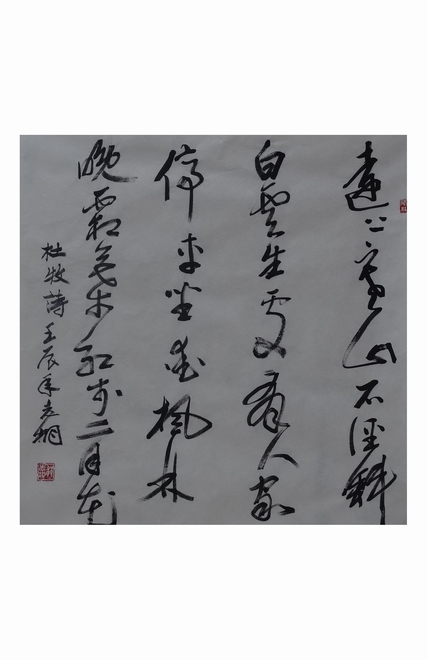 遠上寒山石徑斜
白雲生處有人家
停車坐愛楓林
晚霜葉紅於二月花
杜牧詩 壬辰年